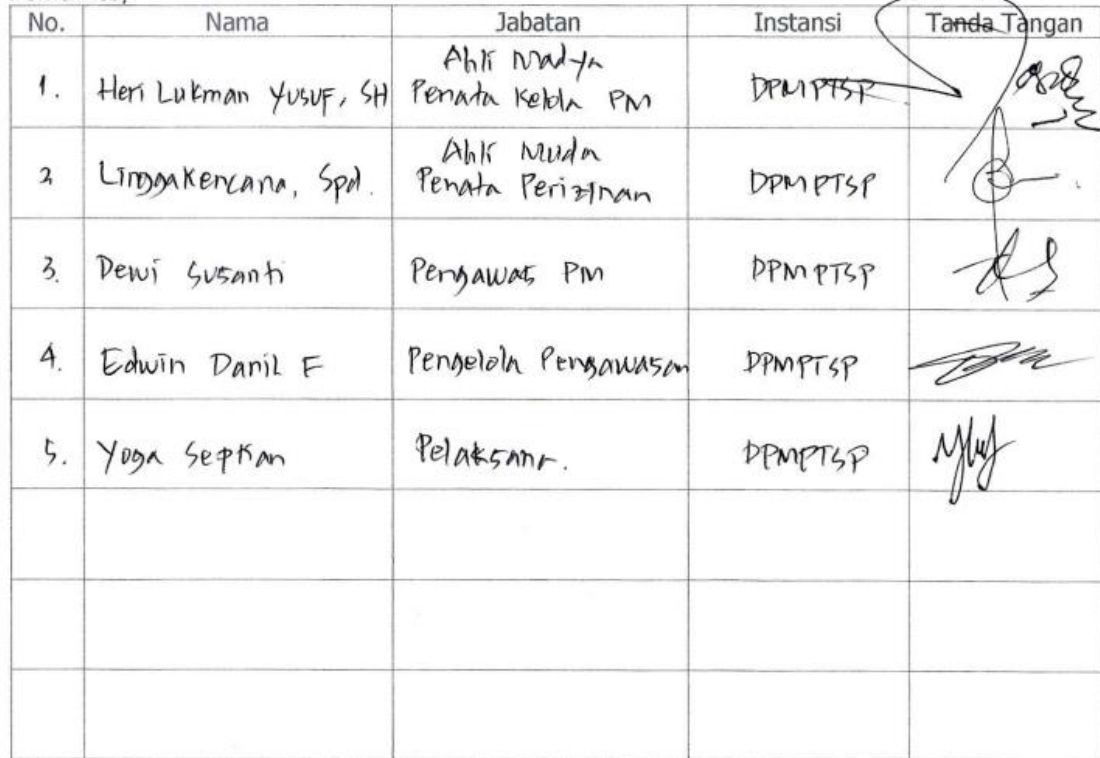 No. Nama Jabatan Instansi Tanda Tangan
1. Heri Lukman Yusuf, SH Ahli Madya Penata Kelola PM DPMPTSP
2 Linggakencana, Spd. Ahli Muda Penata Perizinan DPMPTSP
3. Dewi Susanti Pengawas PM DPMPTSP
4. Edwin Danil F Pengelola Pengawasan DPMPTSP
5. Yoga Septian Pelaksana. DPMPTSP